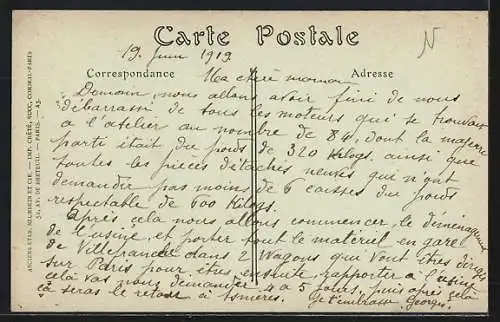 Carte Postale
N
19 Juin 1919
Correspondance
Adresse
Ma chère maman
Demain, nous allons avoir fini de nous
débarrassé de tous les moteurs qui se trouvaient
a l'atelier au nombre de 84, dont la majeure
parti était du poids de 320 Kilogs. ainsi que
toutes les pièces détachées neuves qui n'ont
demander pas moins de 6 caisses du poids
respectable de 600 Kilogs.
Après cela nous allons commencer le déménagement
de l'usine, et porter tout le matériel en gare
de Villefranche dans 2 Wagons qui vont êtres dirigés
sur Paris pour êtres ensuite rapporter à l'usine
celà vas nous demander 4 a 5 jours, puis après celà
ça seras le retour à Asnières. Je t'embrasse. Georges.
ANCIENS ETAB. NEURDEIN ET CIE. — IMP. CRÉTÉ, SUCC. CORBEIL-PARIS
52, AV. DE BRETEUIL. — PARIS. — A5.